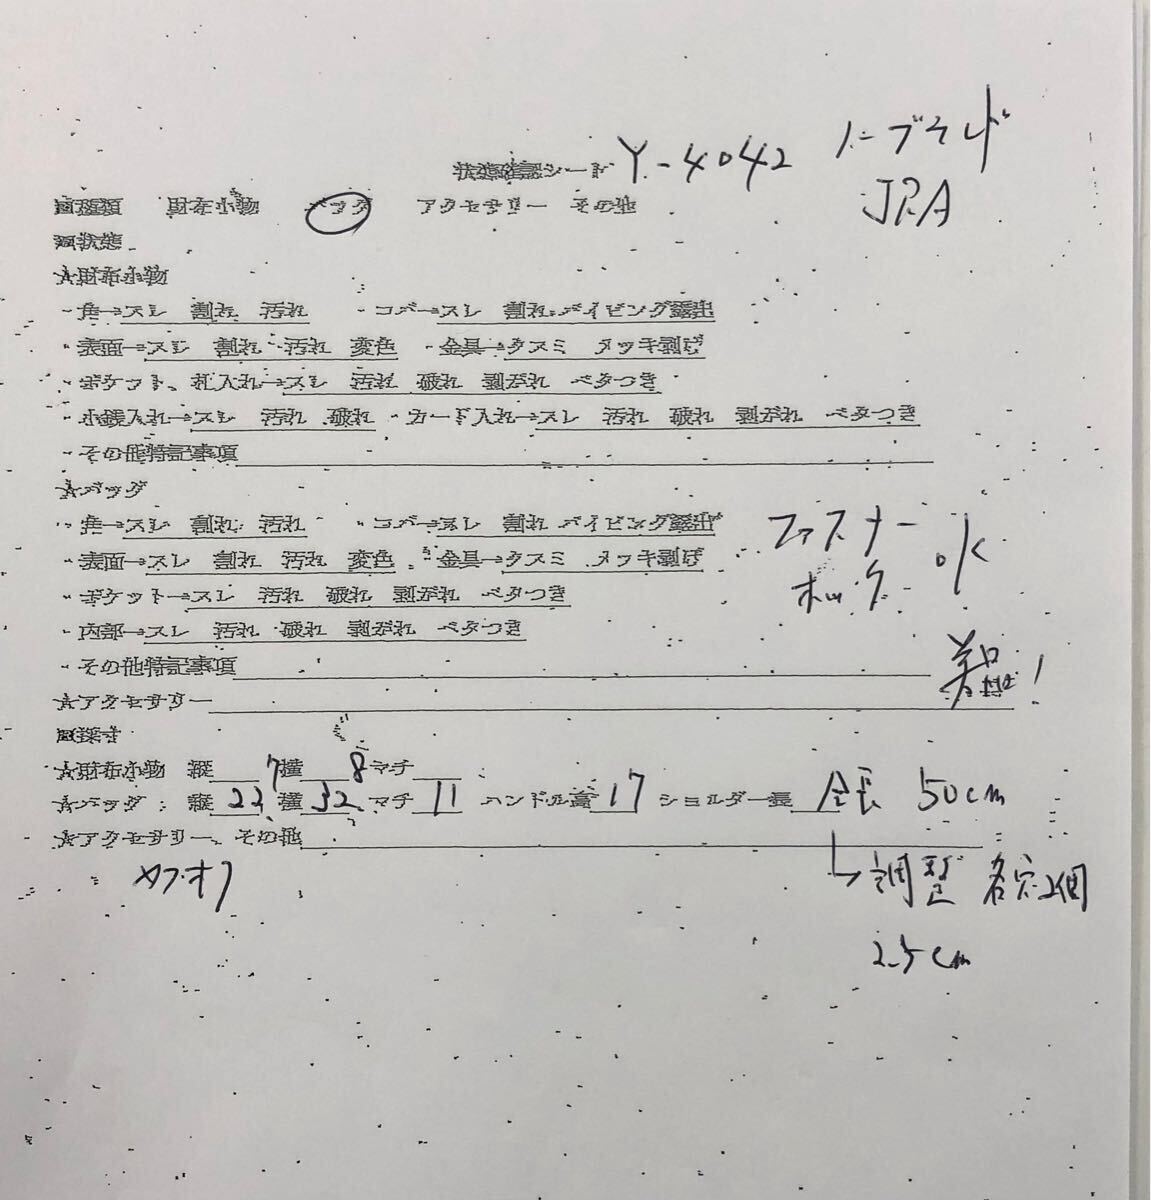 状態確認シート Y-4042 ノーブランド
JRA
□種類 財布小物 バッグ アクセサリー その他
□状態
☆財布小物
・角→スレ 割れ 汚れ ・コバ→スレ 割れ パイピング露出
・表面→スレ 割れ 汚れ 変色 ・金具→クスミ メッキ剥げ
・ポケット、札入れ→スレ 汚れ 破れ 剥がれ ベタつき
・小銭入れ→スレ 汚れ 破れ ・カード入れ→スレ 汚れ 破れ 剥がれ ベタつき
・その他特記事項
☆バッグ
・角→スレ 割れ 汚れ ・コバ→スレ 割れ パイピング露出
・表面→スレ 割れ 汚れ 変色 ・金具→クスミ メッキ剥げ
・ポケット→スレ 汚れ 破れ 剥がれ ベタつき
・内部→スレ 汚れ 破れ 剥がれ ベタつき
ファスナー
ホック
OK
・その他特記事項
美品!
☆アクセサリー
□採寸
☆財布小物 縦 7 横 8 マチ
☆バッグ 縦 23 横 32 マチ 11 ハンドル高 17 ショルダー長 全長 50cm
☆アクセサリー、その他
ヤフオク
↳調整 各穴2個
2.5cm